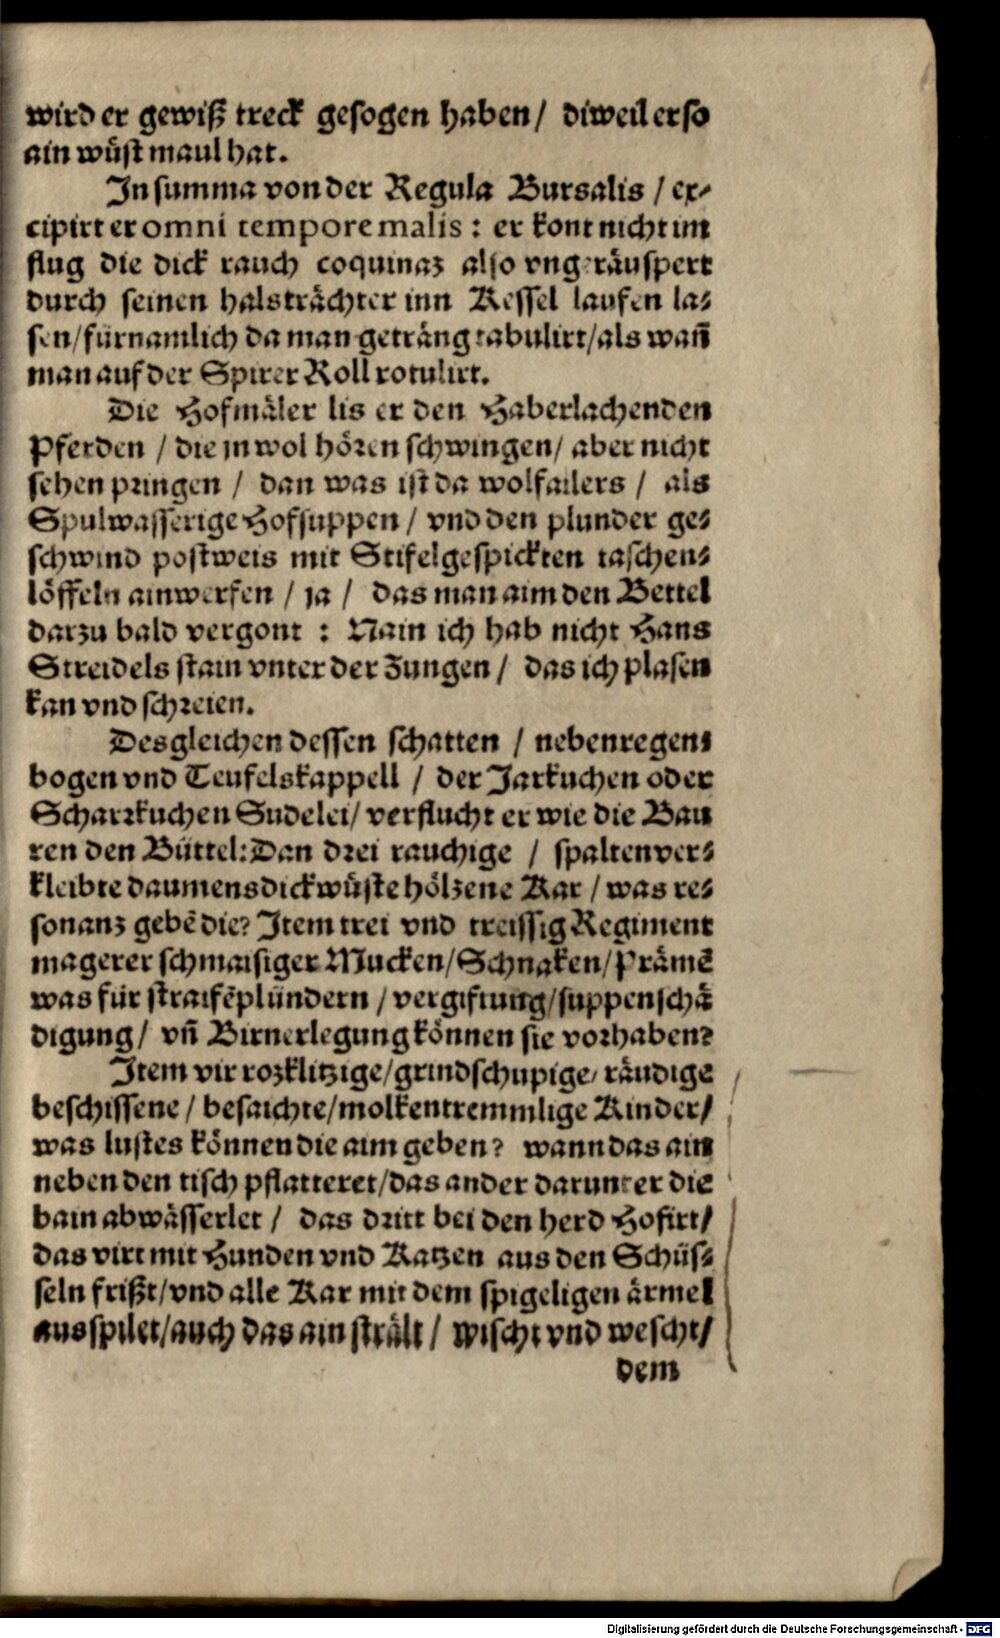 wird er gewiß treck gesogen haben / diweil er so
ain wuͤst maul hat.
In summa von der Regula Bursalis / ex-
cipirt er omni tempore malis : er kont nicht im
flug die dick rauch coquinaz also vngeraͤuspert
durch seinen halstraͤchter inn Kessel laufen la-
sen/fuͤrnamlich da man getraͤng tabulirt/als wañ
man auf der Spirer Roll rotulirt.
Die Hofmaͤler lis er den Haberlachenden
Pferden / die jn wol hoͤren schwingen/ aber nicht
sehen pringen / dan was ist da wolfailers / als
Spulwasserige Hofsuppen / vnd den plunder ge-
schwind postweis mit Stifelgespickten taschen-
loͤffeln ainwerfen / ja / das man aim den Bettel
darzu bald vergont : Nain ich hab nicht Hans
Streidels stain vnter der Zungen / das ich plasen
kan vnd schreien.
Desgleichen dessen schatten / nebenregen-
bogen vnd Teufelskappell / der Jarkuchen oder
Scharrkuchen Sudelei/ verflucht er wie die Bau
ren den Buͤttel: Dan drei rauchige / spaltenver-
kleibte daumensdick wuͤste hoͤlzene Kar / was re-
sonanz gebẽ die? Item trei vnd treissig Regiment
magerer schmaisiger Mucken/Schnaken/Praͤmẽ
was fuͤr straifẽpluͤndern / vergiftung/suppenschaͤ
digung/ vñ Birnerlegung koͤnnen sie vorhaben?
Item vir rozklitzige/grindschupige/ raͤudige
beschissene / besaichte/molkentremmlige Kinder/
was lustes koͤnnen die aim geben? wann das ain
neben den tisch pflatteret/das ander darunter die
bain abwaͤsserlet / das dritt bei den herd Hofirt/
das virt mit Hunden vnd Katzen aus den Schuͤs-
seln frißt/vnd alle Kar mit dem spigeligen aͤrmel
ausspilet/auch das ain straͤlt / wischt vnd wescht/
dem
Digitalisierung gefördert durch die Deutsche Forschungsgemeinschaft - DFG